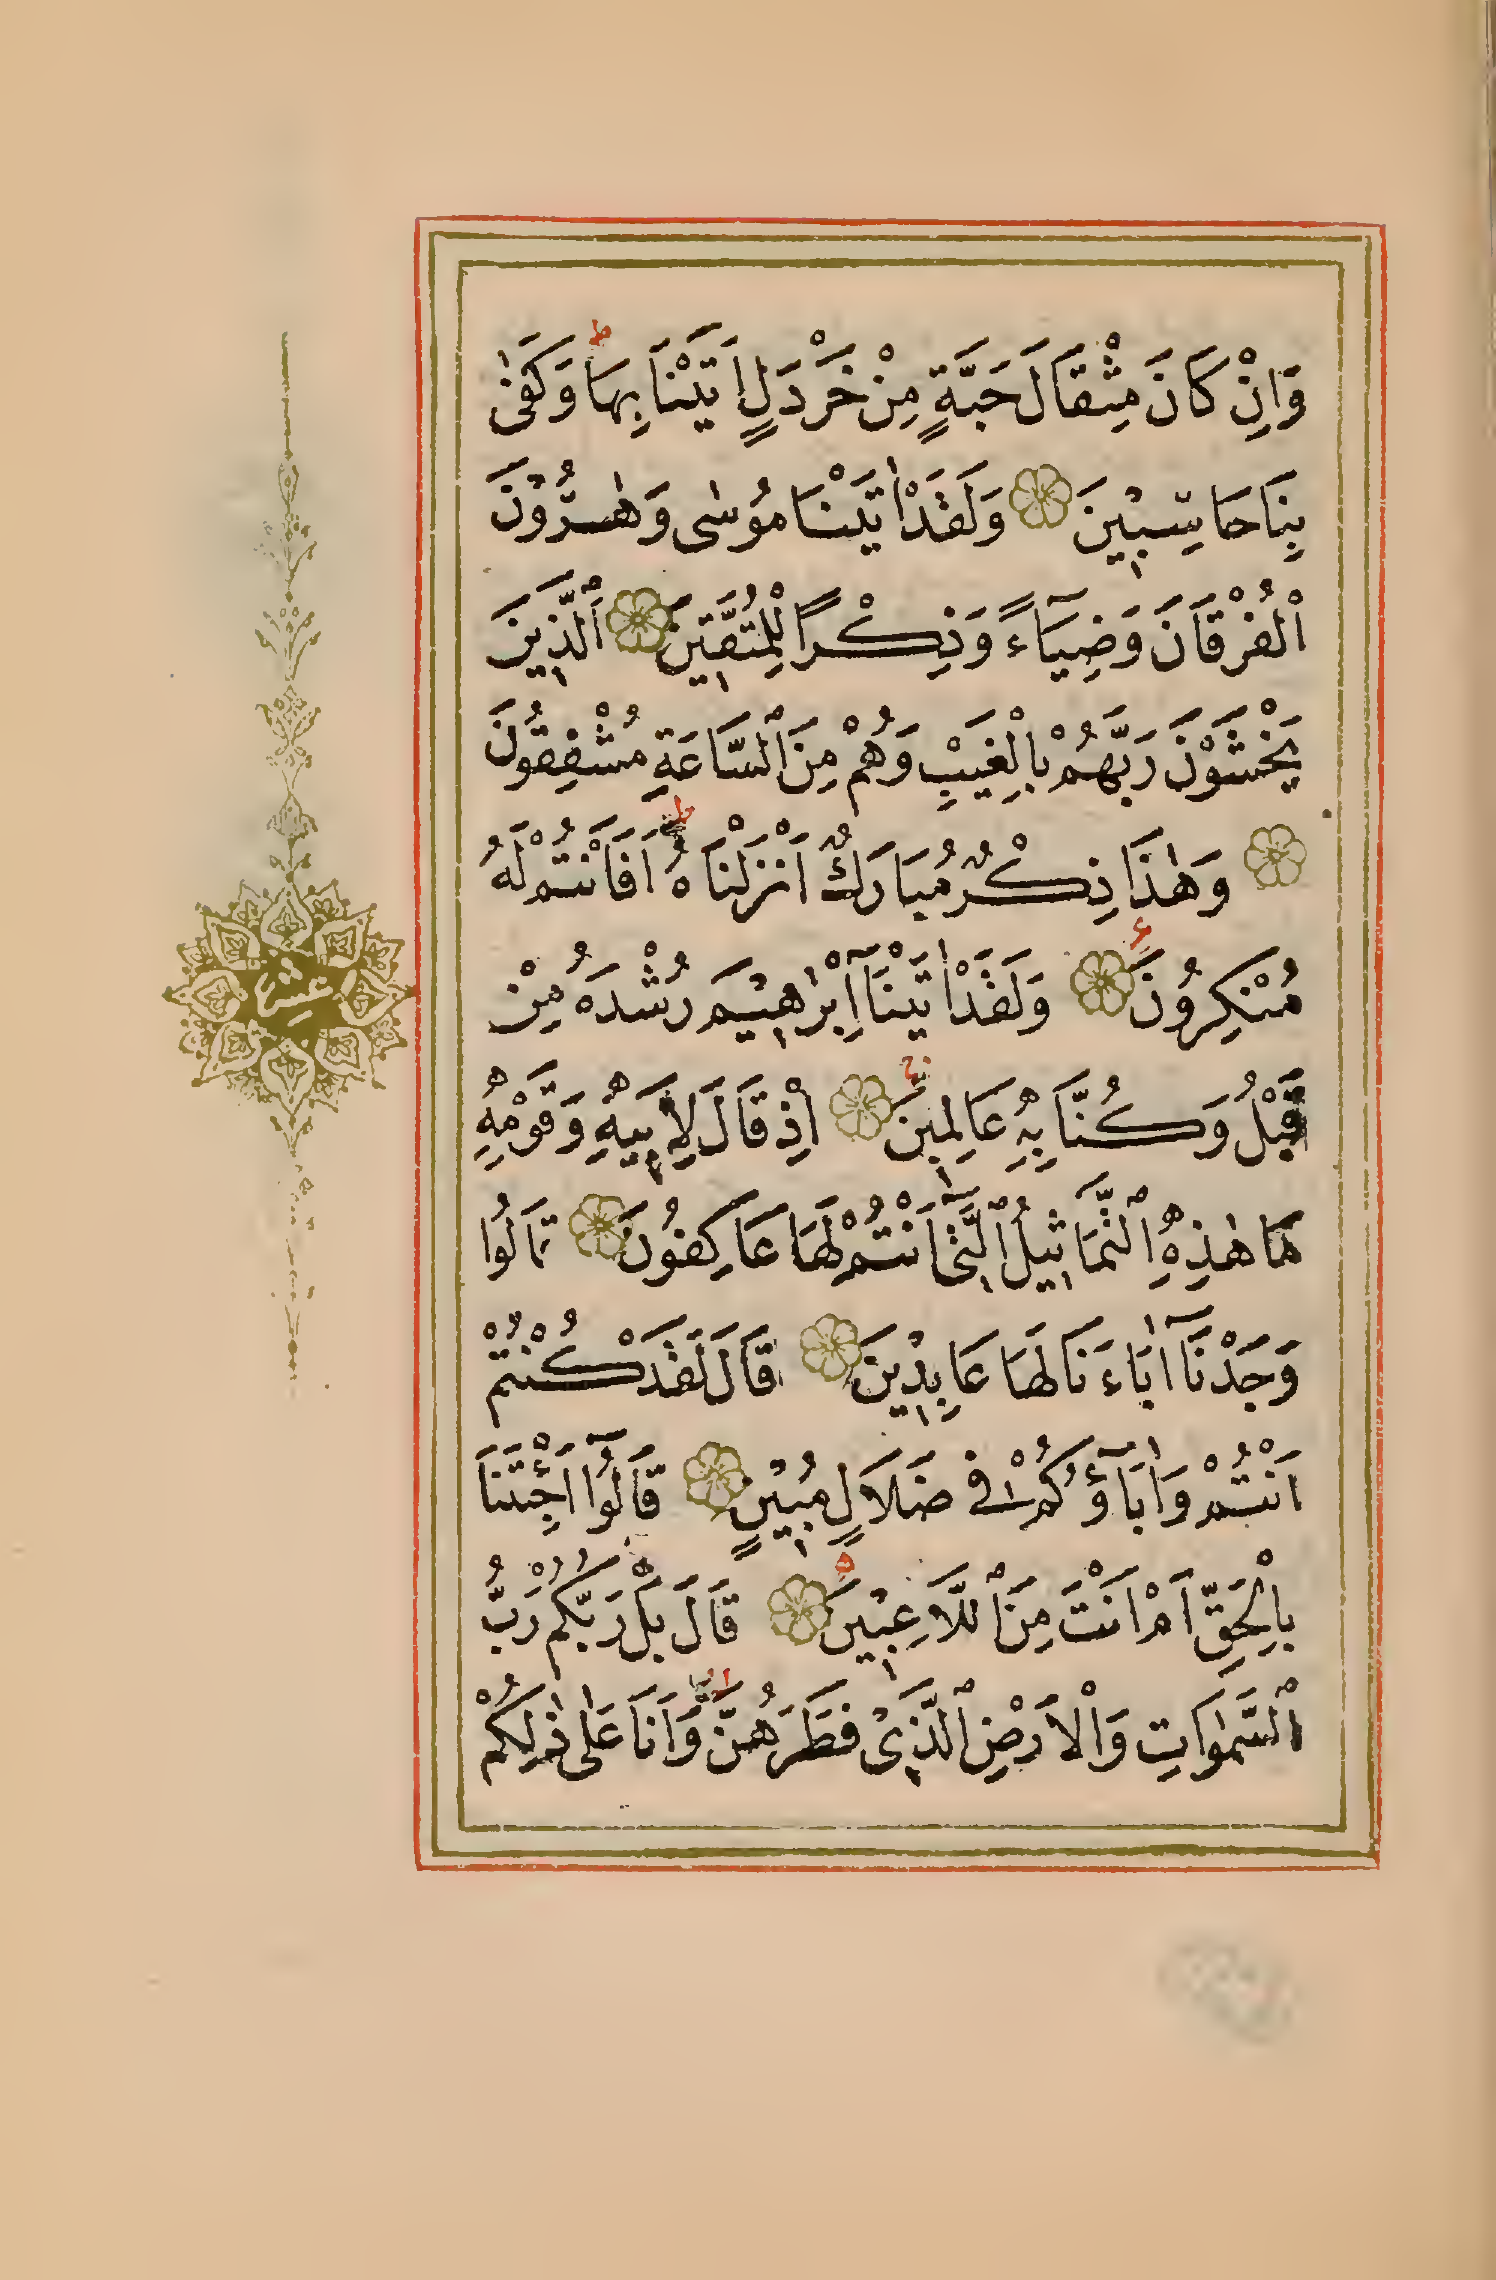 وَاِنْ كَانَ مِثْقَالَ حَبَّةٍ مِنْ خَرْدَلٍ اَتَيْنَا بِهَا ط وَكَفٰى
بِنَا حَاسِبٖينَ وَلَقَدْ اٰتَيْنَا مُوسٰى وَهٰرُوْنَ
الْفُرْقَانَ وَضِيَآءً وَذِكْرًا لِلْمُتَّقٖينَ اَلَّذٖينَ
يَخْشَوْنَ رَبَّهُمْ بِالْغَيْبِ وَهُمْ مِنَ السَّاعَةِ مُشْفِقُونَ
وَهٰذَا ذِكْرٌ مُبَارَكٌ اَنْزَلْنَاهُ ط اَفَاَنْتُمْ لَهُ
مُنْكِرُونَ ع وَلَقَدْ اٰتَيْنَآ اِبْرٰهٖيمَ رُشْدَهُ مِنْ
قَبْلُ وَكُنَّا بِهٖ عَالِمٖينَ ج اِذْ قَالَ لِاَبٖيهِ وَقَوْمِهٖ
مَا هٰذِهِ التَّمَاثٖيلُ الَّتٖٓى اَنْتُمْ لَهَا عَاكِفُونَ قَالُوا
وَجَدْنَآ اٰبَاءَنَا لَهَا عَابِدٖينَ قَالَ لَقَدْ كُنْتُمْ
اَنْتُمْ وَاٰبَآؤُكُمْ فٖى ضَلَالٍ مُبٖينٍ قَالُوٓا اَجِئْتَنَا
بِالْحَقِّ اَمْ اَنْتَ مِنَ اللَّاعِبٖينَ ه قَالَ بَلْ رَبُّكُمْ رَبُّ
السَّمٰوَاتِ وَالْاَرْضِ الَّذٖى فَطَرَهُنَّ وَاَنَا عَلٰى ذٰلِكُمْ